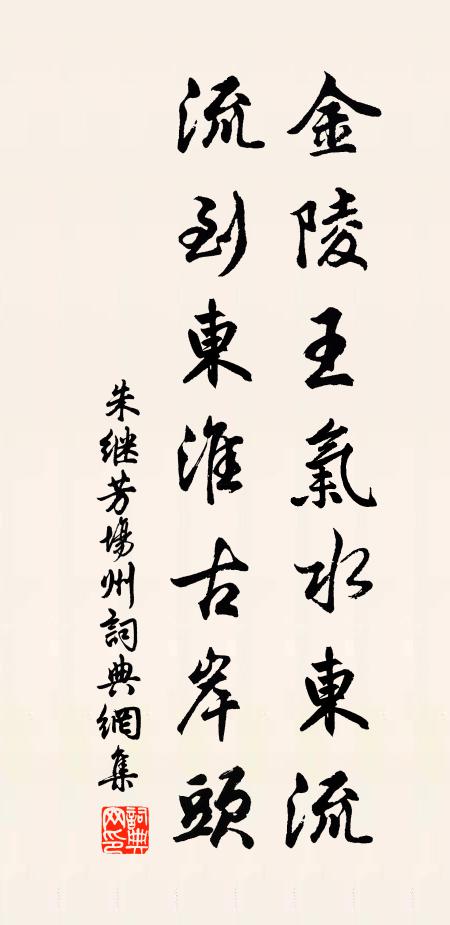 金陵王氣水東流
流到東淮古岸頭
朱继芳場州詞典網集
詞典网印